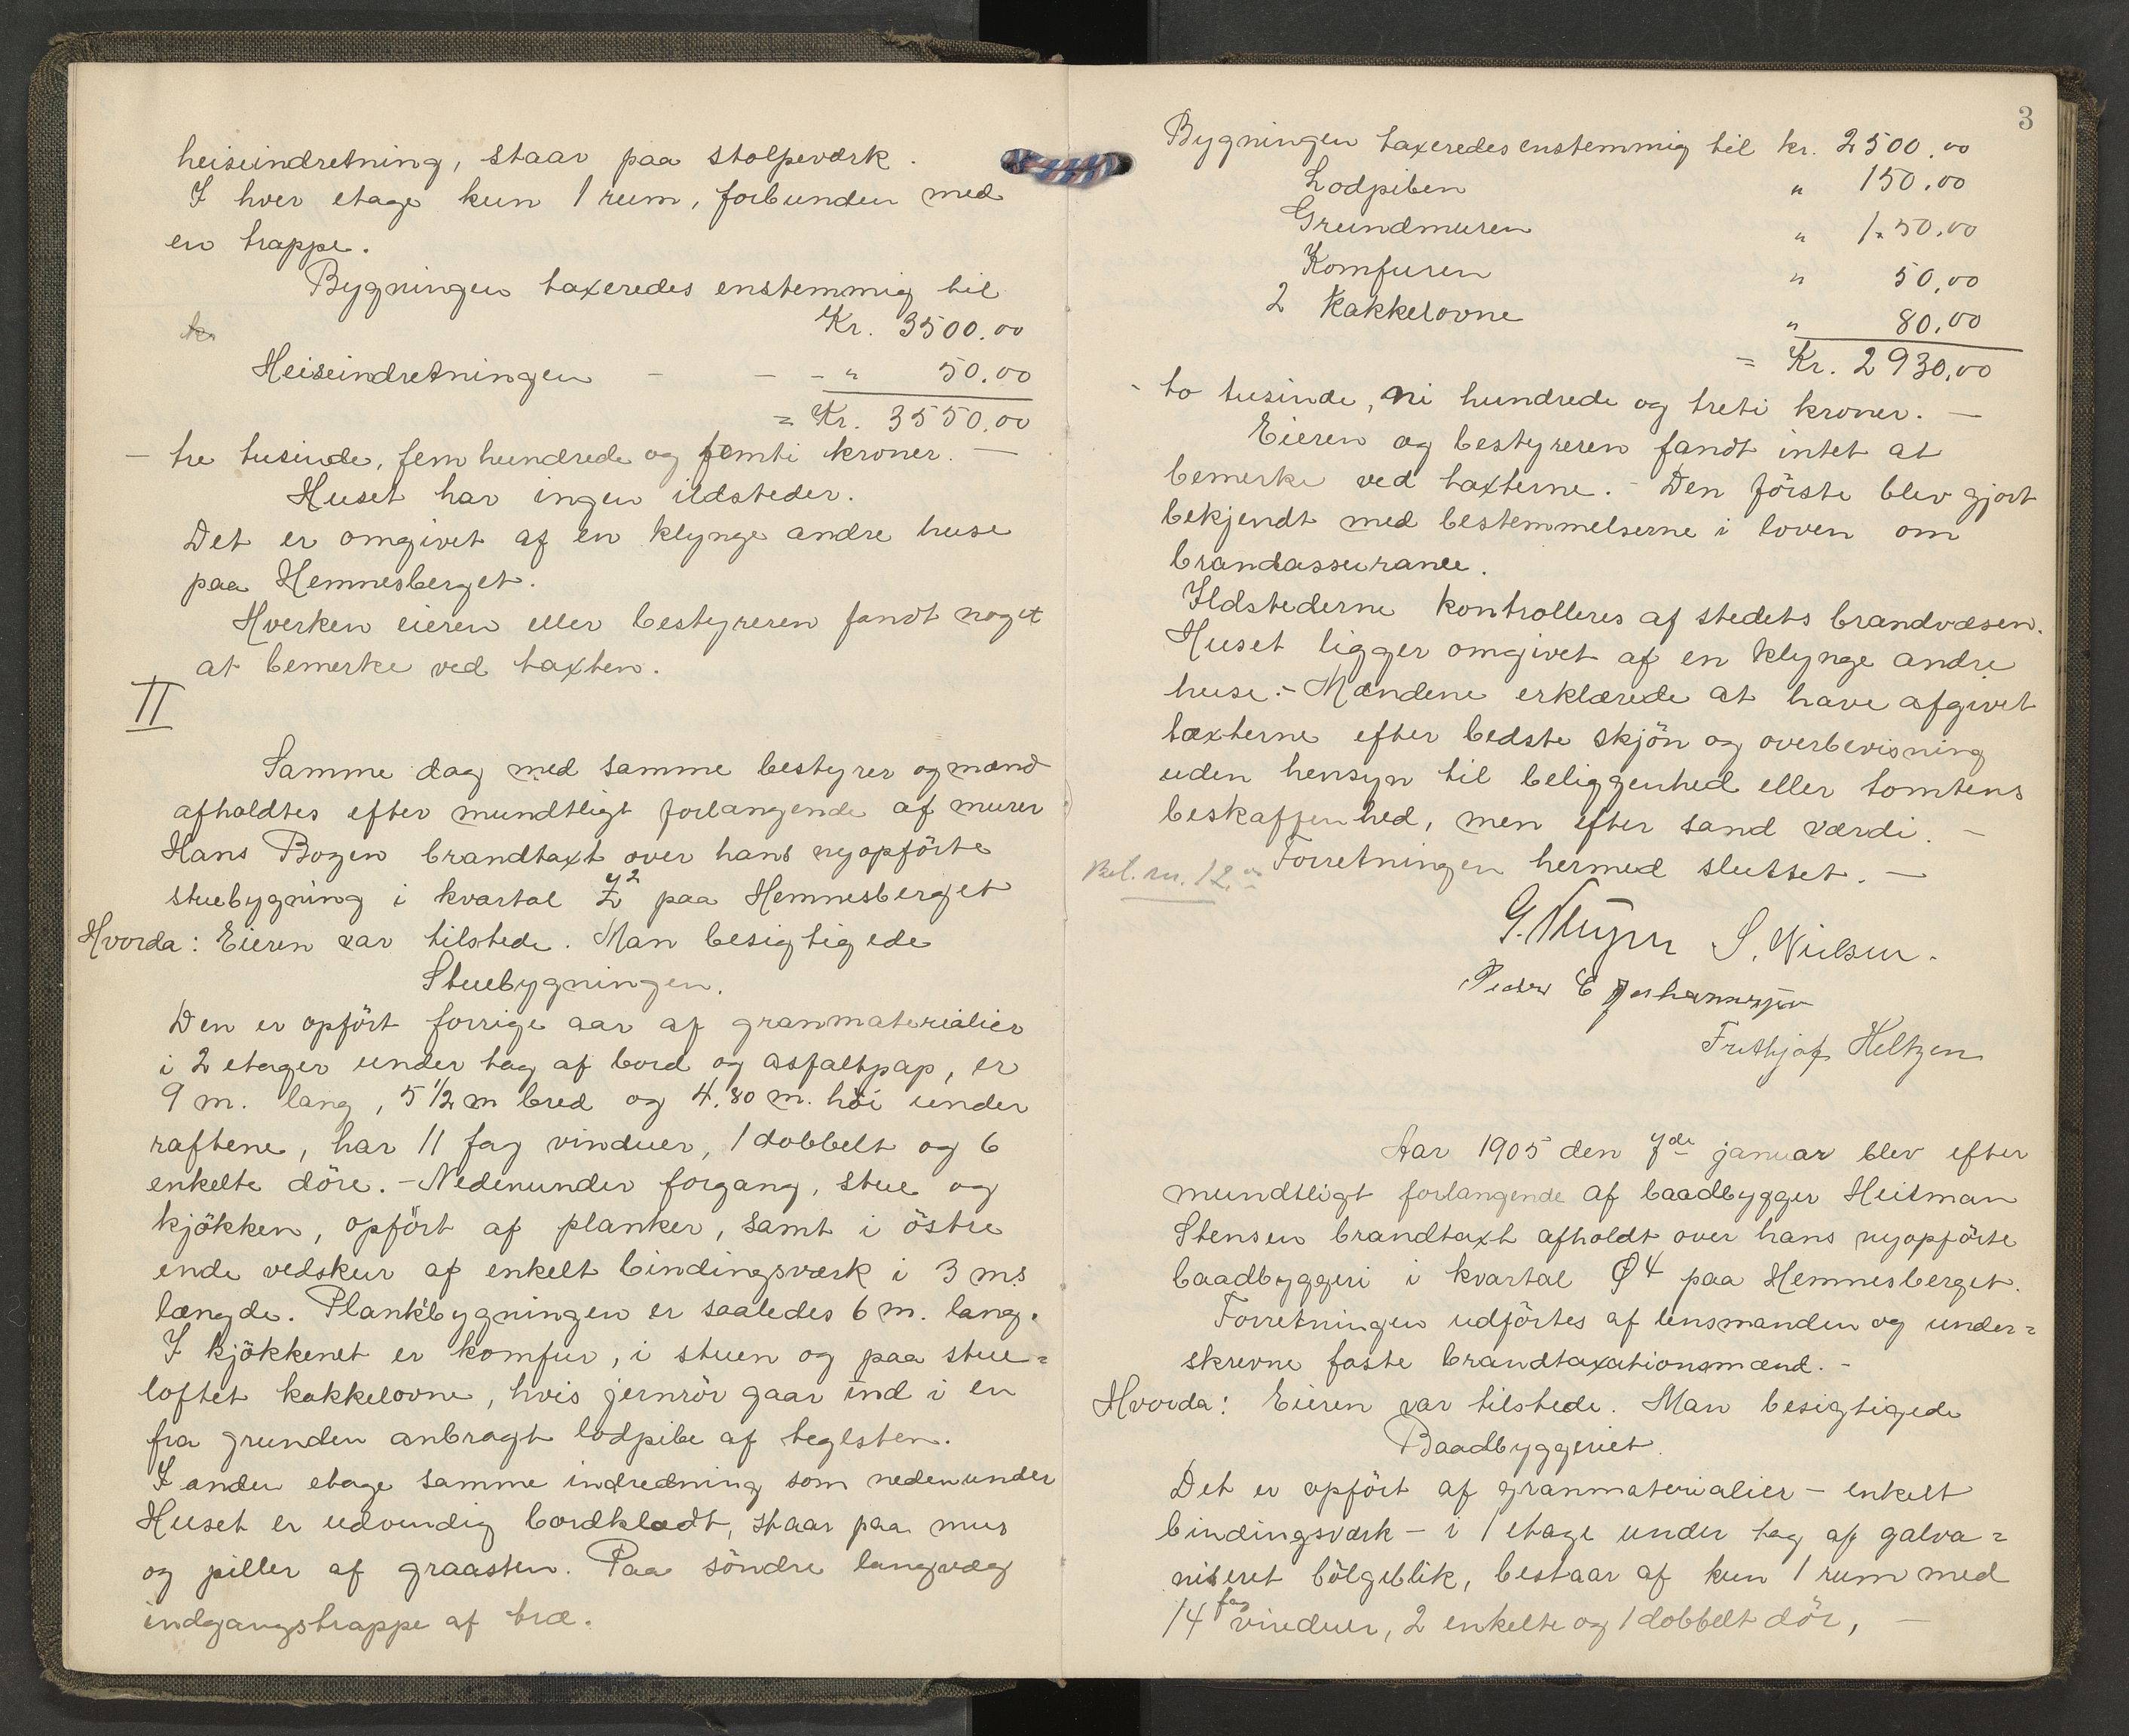 heiseindretning, staar paa stolpeværk.
I hver etage kun 1 rum, forbunden med
en trappe.
Bygningen taxeredes enstemmig til
Kr. 3500.00
Heiseindretningen - - - " 50.00
= Kr. 3550.00
- tre tusinde, fem hundrede og femti kroner. -
Huset har ingen ildsteder.
Det er omgivet af en klynge andre huse
paa Hemnesberget.
Hverken eieren eller bestyreren fandt noget
at bemerke ved taxten.
II
Samme dag med samme bestyrer og mænd
afholdtes efter mundtligt forlangende af murer
Hans Bogen brandtaxt over hans nyopförte
stuebygning i kvartal paa Hemnesberget
Hvorda: Eieren var tilstede. Man besigtigede
Stuebygningen.
Den er opfört forrige aar af granmaterialier
i 2 etager under tag af bord og asfaltpap, er
9 m. lang, 5 1/2 m bred og 4.80 m. höi under
raftene, har 11 fag vinduer, 1 dobbelt og 6
enkelte döre. - Nedenunder forgang, stue og
kjökken, opfört af planker, samt i östre
ende vedskur af enkelt bindingsværk i 3 m.s
længde. Plankbygningen er saaledes 6 m. lang.
I kjökkenet er komfur, i stuen og paa stue=
loftet kakkelovne, hvis jernrör gaar ind i en
fra grunden anbragt lodpibe af teglsten.
I anden etage samme indredning som nedenunder
Huset er udvendig bordklædt, staar paa mur
og piller af graasten. Paa söndre langvæg
indgangstrappe af træ.
3
Bygningen taxeredes enstemmig til kr. 2500.00
Lodpiben " 150.00
Grundmuren " 150.00
Komfuren " 50.00
2 Kakkelovne " 80.00
= Kr. 2930.00
- to tusinde, ni hundrede og treti kroner. -
Eieren og bestyreren fandt intet at
bemerke ved taxterne. - Den förste blev gjort
bekjendt med bestemmelserne i loven om
brandassurance.
Ildstederne kontrolleres af stedets brandvæsen.
Huset ligger omgivet af en klynge andre
huse. - Mændene erklærede at have afgivet
taxterne efter bedste skjön og overbevisning
uden hensyn til beliggenhed eller tomtens
beskaffenhed, men efter sand værdi. -
Forretningen hermed sluttet. -
12.00
S. Nielsen.
Peder E Johannesen
Frithjof Heltzen
Aar 1905 den 7de januar blev efter
mundtligt forlangende af baadbygger Heitman
Stensen brandtaxt afholdt over hans nyopförte
baadbyggeri i kvartal Ø4 paa Hemnesberget.
Forretningen udförtes af lensmanden og under=
skrevne faste brandtaxationsmænd. -
Hvorda: Eieren var tilstede. Man besigtigede
Baadbyggeriet.
Det er opfört af granmaterialier - enkelt
bindingsværk - i 1 etage under tag af galva=
niseret bölgeblik, bestaar af kun 1 rum med
14 fag vinduer, 2 enkelte og 1 dobbelt dör, -